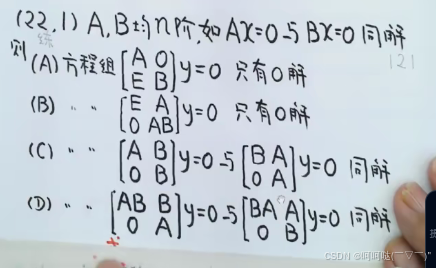 (22,1) A,B均n阶,如 AX=0与BX=0同解
则 (A) 方程组 [A O; E B] y=0 只有0解
(B) " " [E A; O AB] y=0 只有0解
(C) " " [A B; O B] y=0 与 [B A; O A] y=0 同解
(D) " " [AB B; O A] y=0 与 [BA A; O B] y=0 同解
121
CSDN @呵呵哒(￣▽￣)"